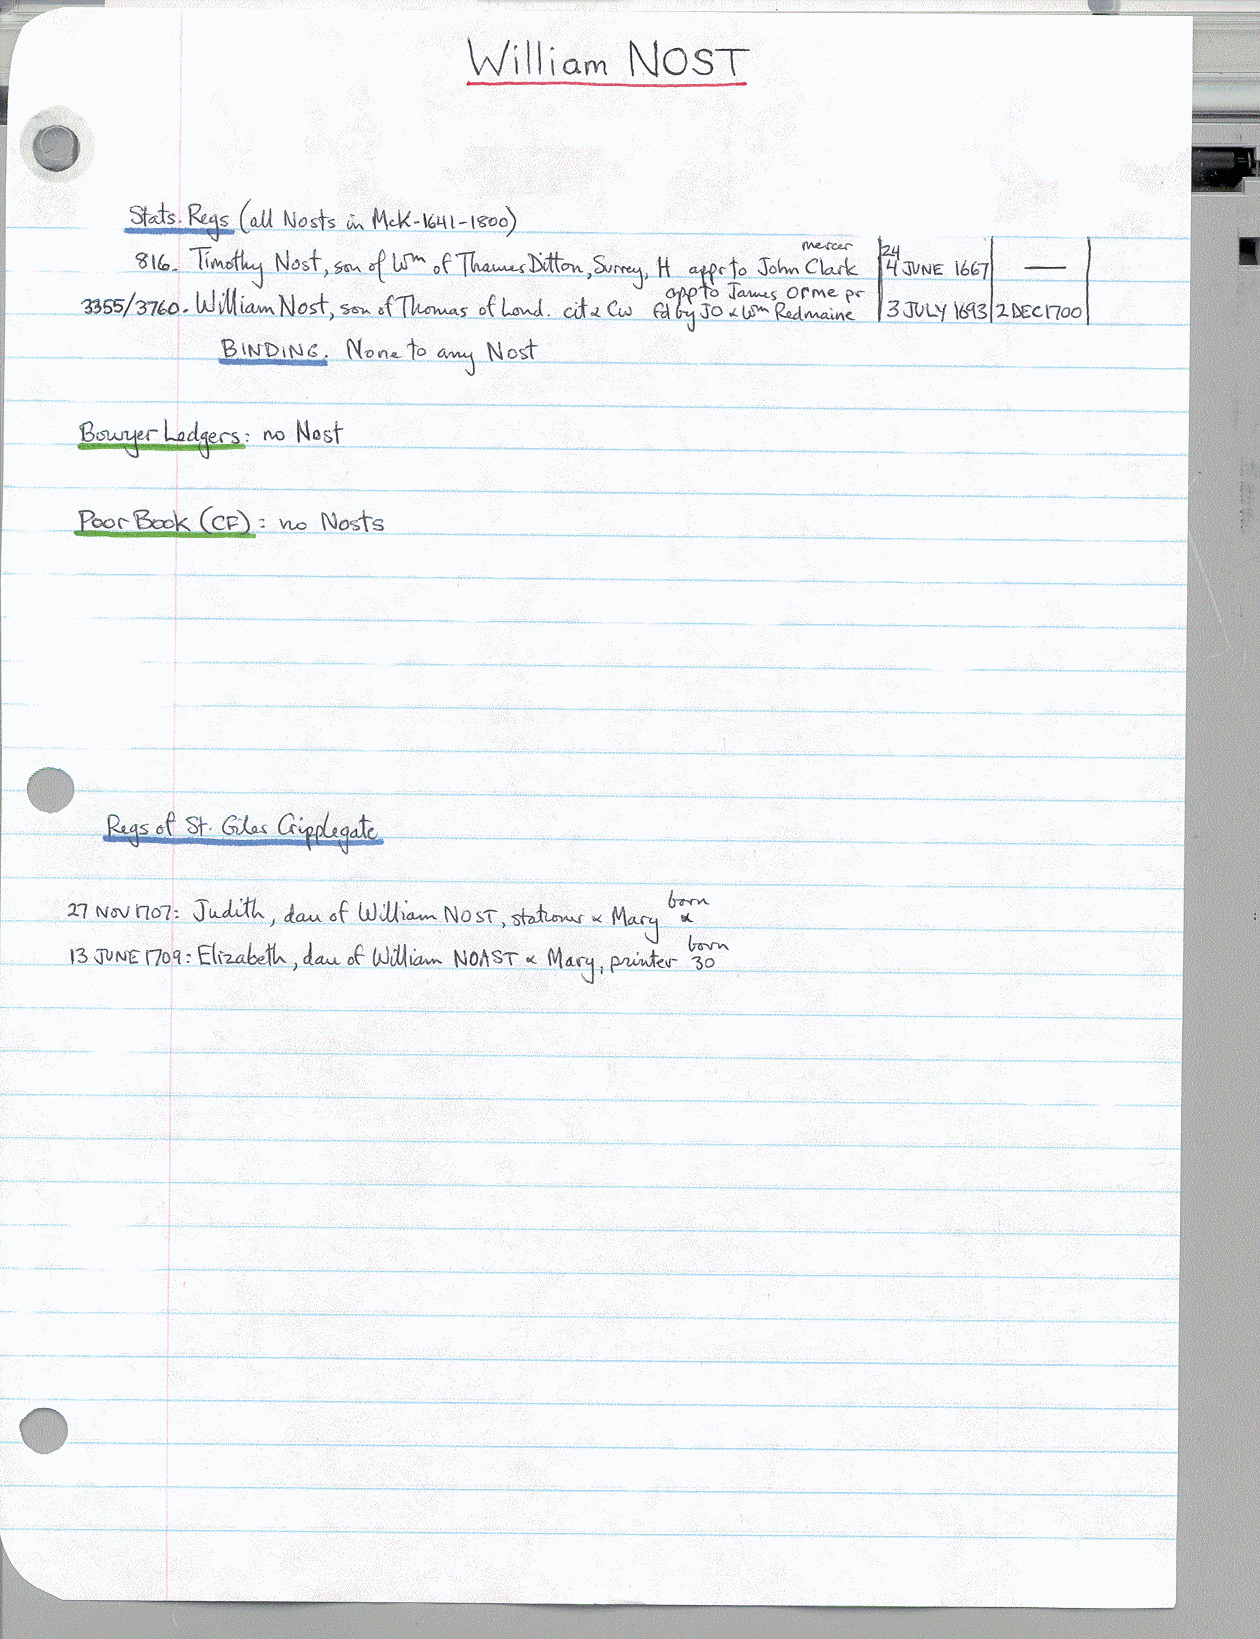 William NOST
Stats. Regs (all Nosts in McK-1641-1800)
mercer
816. Timothy Nost, son of Wm of Thames Ditton, Surrey, H appr to John Clark 24 4 JUNE 1667 —
app to James Orme pr
3355/3760. William Nost, son of Thomas of Lond. cit & Cw fd by JO & Wm Redmaine 3 JULY 1693 2 DEC 1700
BINDING. None to any Nost
Bowyer Ledgers: no Nost
Poor Book (CF): no Nosts
Regs of St. Giles Cripplegate
born
27 NOV 1707: Judith, dau of William NOST, stationer & Mary &
born
13 JUNE 1709: Elizabeth, dau of William NOAST & Mary, printer 30